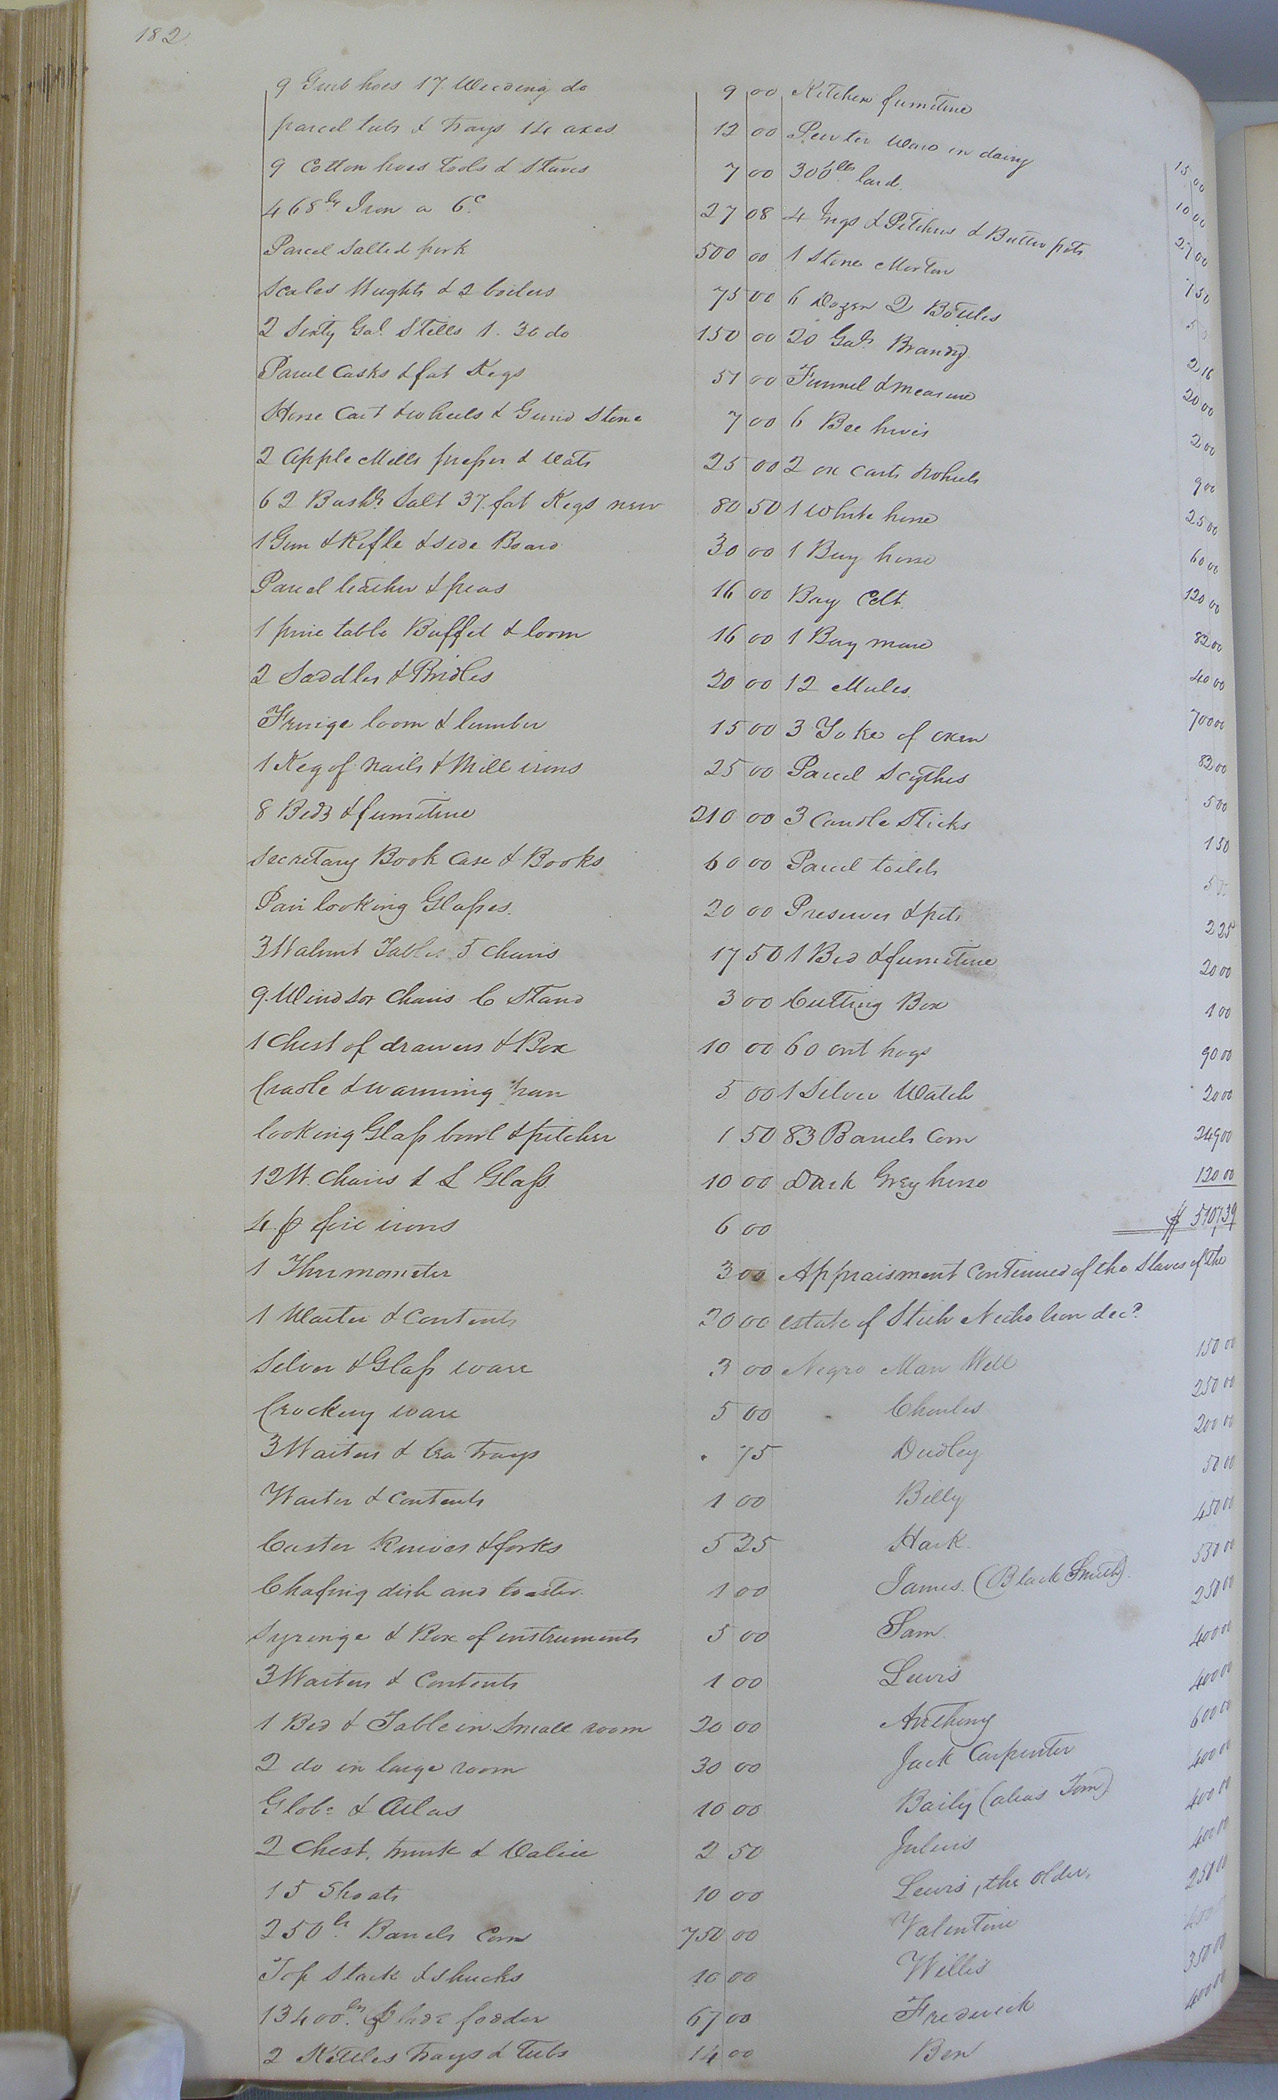 182
9 Grub hoes 17 Weeding do 9 00
parcel tubs & trays 14 axes 12 00
9 Cotton hoes tools & Staves 7 00
468 lbs Iron a 6c 27 08
Parcel Salted pork 500 00
Scales Weights & 2 boilers 75 00
2 Sixty Gal. Stills 1. 30 do 150 00
Parcel Casks & fat Kegs 51 00
Horse Cart & wheels & Grind Stone 7 00
2 Apple Mills presses & Vats 25 00
62 Bushs. Salt 37 fat Kegs new 80 50
1 Gun & Rifle & side Board 30 00
Parcel leather & peas 16 00
1 pine table Buffet & loom 16 00
2 Saddles & Bridles 20 00
Fringe loom & lumber 15 00
1 Keg of nails & Mill irons 25 00
8 Beds & furniture 210 00
Secretary Book Case & Books 60 00
Pair looking Glasses. 20 00
3 Walnut Tables 5 chairs 17 50
9 Windsor Chairs C Stand 3 00
1 Chest of drawers & Box 10 00
Cradle & warming pan 5 00
looking Glass bowl & pitcher 1 50
12 W. Chairs & L Glass 10 00
4 p fire irons 6 00
1 Thermometer 3 00
1 Waiter & Contents 20 00
Silver & Glass ware 3 00
Crockery ware 5 00
3 Waiters & tea trays . 75
Waiter & contents 1 00
Caster Knives & forks 5 25
Chafing dish and toaster. 1 00
Syringe & Box of instruments 5 00
3 Waiters & Contents 1 00
1 Bed & Table in Small room 20 00
2 do in large room 30 00
Globe & Atlas 10 00
2 Chest, trunk & Valice 2 50
15 Shoats 10 00
250 Barrels Corn 750 00
Top Stack & shucks 10 00
13400 lbs blade fodder 67 00
2 Kettles trays & Tubs 14 00
Kitchen furniture 15 00
Pewter Ware in dairy 10 00
300 lbs lard. 27 00
4 Jugs & Pitchers & Butter pots 7 50
1 Stone Morter
6 Dozen 2 Bottles 2 16
20 Gals Brandy 20 00
Funnel & measure 2 00
6 Bee hives 9 00
2 ox carts & wheels 25 00
1 White horse 60 00
1 Bay horse 120 00
Bay Colt. 82 00
1 Bay mare 40 00
12 Mules 700 00
3 Yoke of oxen 82 00
Parcel Scythes 5 00
3 Candle Sticks 1 50
Parcel toilets
Preserves & pots 2 25
1 Bed & furniture 20 00
Cutting Box 1 00
60 out hogs 90 00
1 Silver Watch 20 00
83 Barrels Corn 249 00
Dark Grey horse 120 00
$ 5107,39
Appraisment Continued of the Slaves of the
estate of Nicholson decd.
Negro Man Will 150 00
Charles 250 00
Dudley 200 00
Billy 50 00
Hark. 450 00
James. (Black Smith). 550 00
Sam. 250 00
Lewis 400 00
Anthony 400 00
Jack Carpenter 600 00
Baily (alias Tom) 400 00
Julius 400 00
Lewis, the older, 400 00
Valentine 250 00
Willis
Frederick 350 00
Ben 400 00